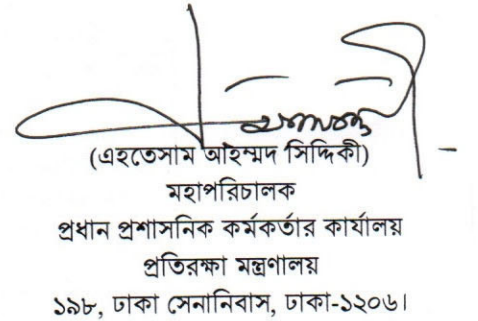 (এহতেসাম আহম্মদ সিদ্দিকী)
মহাপরিচালক
প্রধান প্রশাসনিক কর্মকর্তার কার্যালয়
প্রতিরক্ষা মন্ত্রণালয়
১৯৮, ঢাকা সেনানিবাস, ঢাকা-১২০৬।